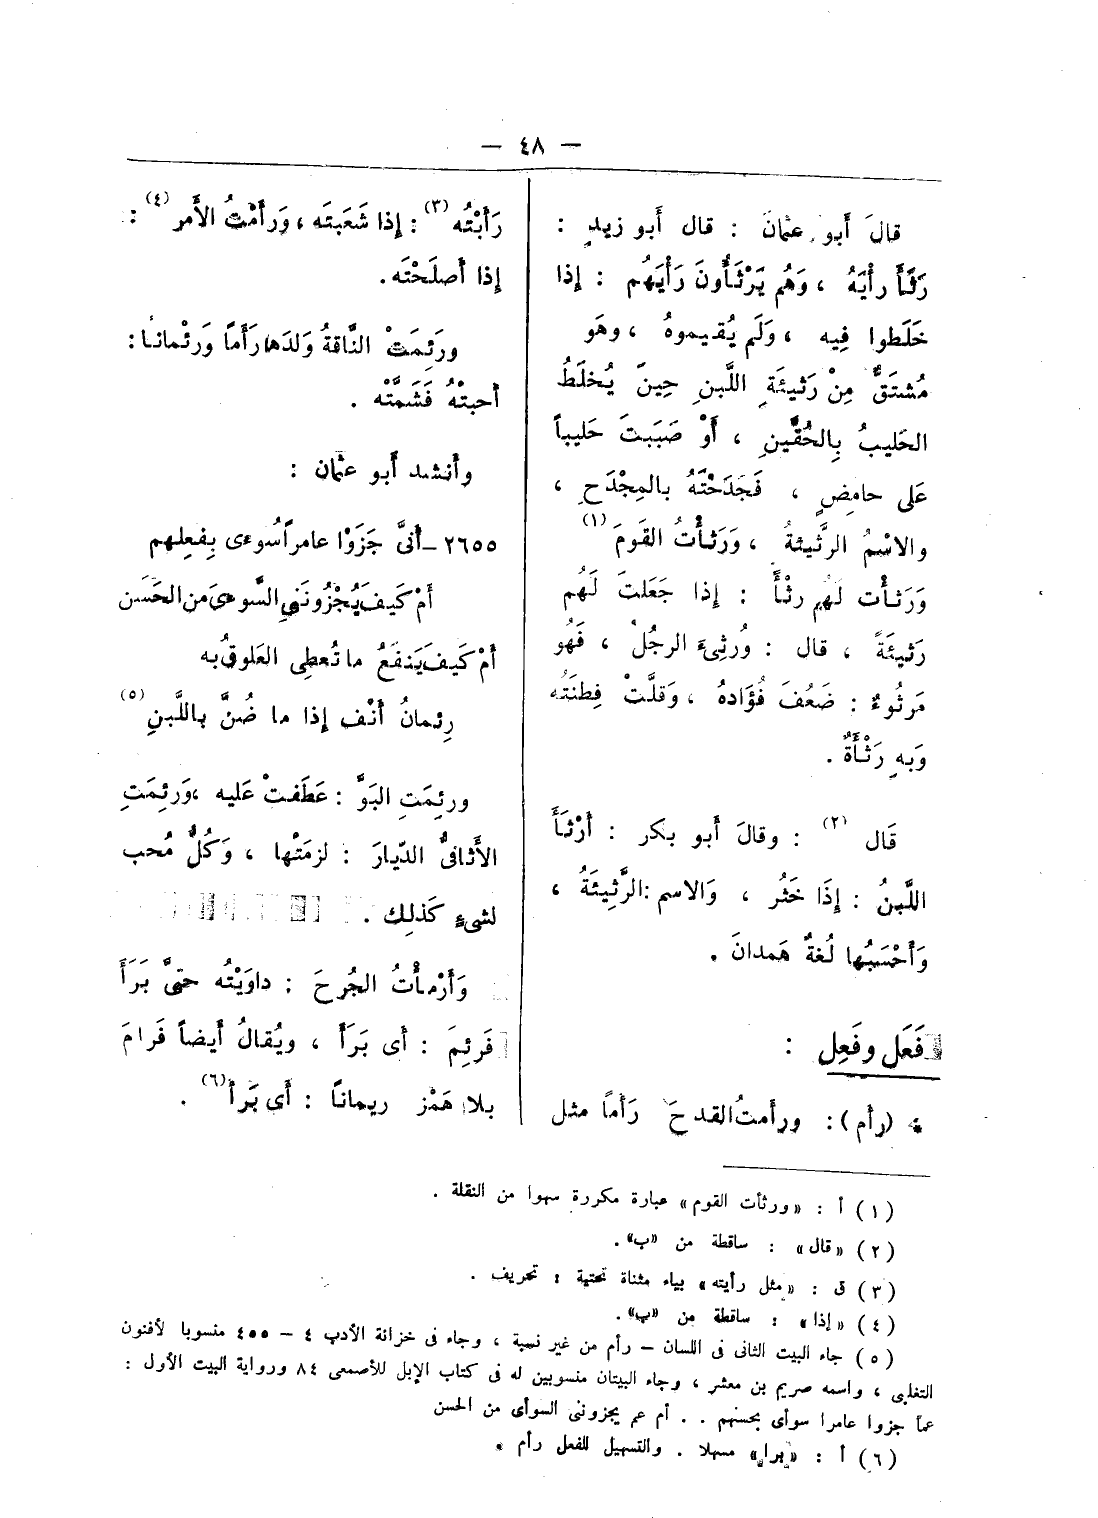 — ٤٨ —
قالَ أَبو عثمانَ : قال أَبو زيدٍ :
رَثَأَ رأْيَهُ ، وَهُم يَرْثَأُونَ رَأْيَهُم : إذا
خَلَطوا فِيه ، وَلَم يُقيموهُ ، وهَو
مُشتَقٌّ مِنْ رَثيئَةِ اللَّبنِ حِينَ يُخلَطُ
الحَليبُ بِالحُقَّينِ ، أَوْ صَبَبتَ حَليباً
عَلى حامِضٍ ، فَجَدَحْتَهُ بالمِجْدَحِ ،
والاسْمُ الرَّثيئةُ ، وَرَثأْتُ القَومَ (١)
وَرَثأْت لَهُم رثْأً : إذا جَعَلتَ لَهُم
رَثيئَةً ، قال : وُرثِىءَ الرجُلُ ، فَهُو
مَرثُوءٌ : ضَعُفَ فُؤَادهُ ، وَقلَّتْ فِطنَتُه
وَبهِ رَثْأَةٌ .
قَال (٢) : وقالَ أَبو بكر : أَرْثأَ
اللَّبنُ : إِذَا خَثُر ، وَالاسم : الرَّثِيئَةُ ،
وَأَحْسَبُها لُغةٌ هَمدانَ .
فَعَل وفَعِل :
* (رأم) : ورأَمتُ القدحَ رَأَماً مثل
رَأَبْتُه (٣) : إذا شَعَبتَه ، وَرأَمْتُ الأَمر (٤) :
إذا أصلَحْتَه .
ورَئِمَتْ النَّاقةُ وَلدَها رَأَماً وَرئْمانا :
أحبتْهُ فَشَمَّتْه .
وأَنشد أَبو عثمان :
٢٦٥٥ – أَنىَّ جَزَوْا عامراً سُوءى بِفعلِهم
أَمْ كَيفَ يُجْزُونَنىِ السُّوءى مَن الحَسَن
أَمْ كَيفَ يَنفَعُ ما تُعطِى العَلوقُ به
رِئمانُ أَنْف إذا ما ضُنَّ باللَّبنِ (٥)
ورئِمَتِ البَوَّ : عَطَفتْ عَليه ، وَرئِمَتِ
الأَثافىُّ الدّيارَ : لزمَتْها ، وَكُلُّ مُحب
لشىءٍ كَذلِك .
وَأَرْمأْتُ الجُرحَ : داوَيْتُه حتىَّ بَرَأَ
فَرئِمَ : أى بَرَأَ ، ويُقالُ أَيضاً فَرامَ
بلا هَمْز ريماناً : أَى بَرأَ (٦) .
(١) أ : «ورثأت القوم» عبارة مكررة سهوا من النقلة .
(٢) «قال» : ساقطة من «ب» .
(٣) ق : «مثل رأيته» بياء مثناة تحتية : تحريف .
(٤) «إذا» : ساقطة من «ب» .
(٥) جاء البيت الثانى فى اللسان – رأم من غير نسبة ، وجاء فى خزانة الأدب ٤ – ٤٥٥ منسوبا لأفنون
التغلبى ، واسمه صريم بن معشر ، وجاء البيتان منسوبين له فى كتاب الإبل للأصمعى ٨٤ ورواية البيت الأول :
عماً جزوا عامرا سوأى بحسنهم . . أم عم يجزوننى السوأى من الحسن
(٦) أ : «برا» مسهلا . والتسهيل للفعل رأم .